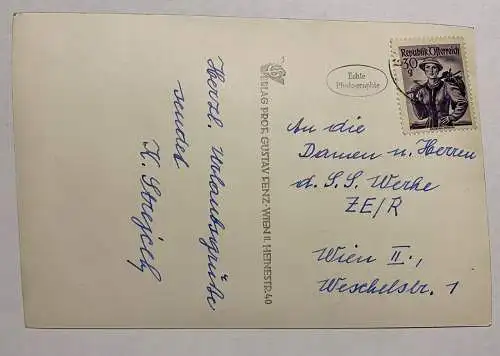 Herzl. Urlaubsgrüße
sendet
K.
VERLAG PROF. GUSTAV PENZ - WIEN II, HEINESTR. 40
Echte
Photographie
Republik Österreich
30
g
An die
Damen u. Herren
d. S. S. Werke
ZE/R
Wien II.,
Weschelstr. 1